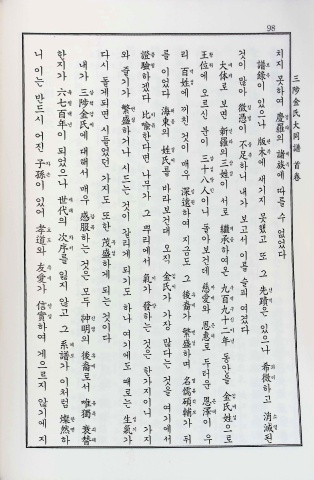 98
三陟金氏大同譜 首卷
치지 못하여 慶羅의 諸族에 따를 수 없었다
譜錄이 있으나 版本에 새기지 못했고 또 그 先蹟은 있으나 希微하고 消滅된
것이 많아 徵憑이 不足하니 내가 보고서 이를 슬피 여겼다
大体로 보면 新羅의 三姓이 서로 繼承하여온 九百九十二年 동안을 金氏姓으로
王位에 오르신 분이 三十八人이니 돌아보건데 慈愛와 恩惠로 두터운 恩澤이 우
리 百姓에 끼친 것이 매우 深遠하여 지금도 그 後裔가 繁盛하며 名儒碩輔가 뒤
를 이었다 海東의 姓氏를 바라보건대 오직 金氏가 가장 많다는 것을 여기에서
證驗하겠다 比喩한다면 나무가 그 뿌리에서 氣가 發하는 것은 한가지이니 가지
와 줄기가 繁盛하거나 시드는 것이 갈리게 되기도 하나 여기에도 때로는 生氣가
다시 돌게되면 시들었던 가지도 또한 茂盛하게 되는 것이다
내가 三陟金氏에 대해서 매우 感服하는 것은 모두 神明의 後裔로서 唯獨 衰替
한지가 六七百年이 되었으나 世代의 次序를 잃지 않고 그 系譜가 이처럼 燦然하
니 이는 반드시 어진 子孫이 있어 孝道와 友愛가 信實하여 게으르지 않기에 지